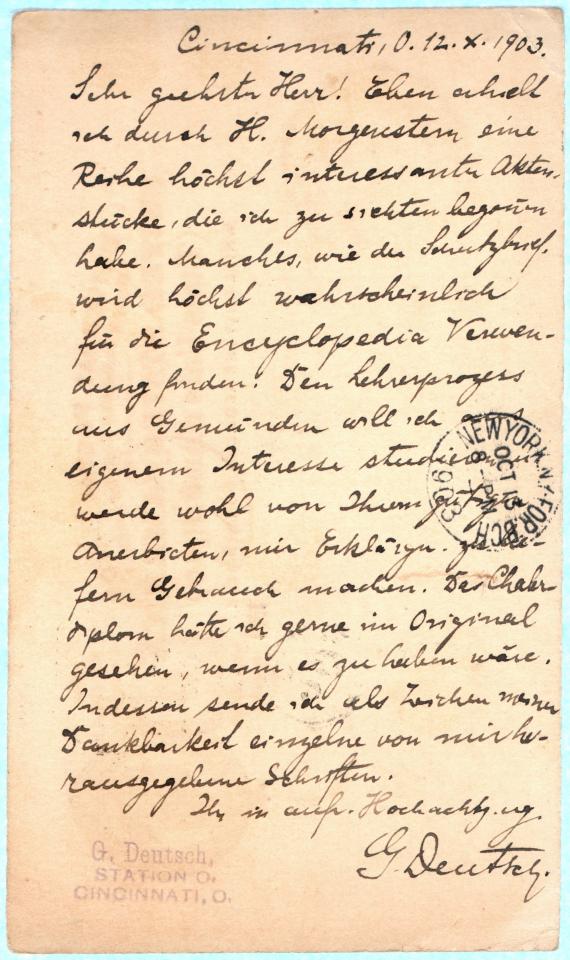 Cincinnati, O. 12. X. 1903.
Sehr geehrter Herr! Eben erhielt
ich durch H. Morgenstern eine
Reihe höchst interessanter Akten-
stücke, die ich zu sichten begonnen
habe. Manches, wie der Schutzbrief,
wird höchst wahrscheinlich
für die Encyclopedia Verwen-
dung finden. Den Lehrerprozess
aus Gemünden will ich
eigenem Interesse studieren
werde wohl von Ihrem
Anerbieten, mir Erklärgn.
fern Gebrauch machen. Das Chaber-
diplom hätte ich gerne im Original
gesehen, wenn es zu haben wäre.
Indessen sende ich als Zeichen meiner
Dankbarkeit einzelne von mir he-
rausgegebene Schriften.
Ihr in aufr. Hochachtg.
G Deutsch.
NEW YORK, N.Y. FOR. BCH
OCT 13
8 - PM
1903
G. Deutsch,
STATION O.
CINCINNATI, O.